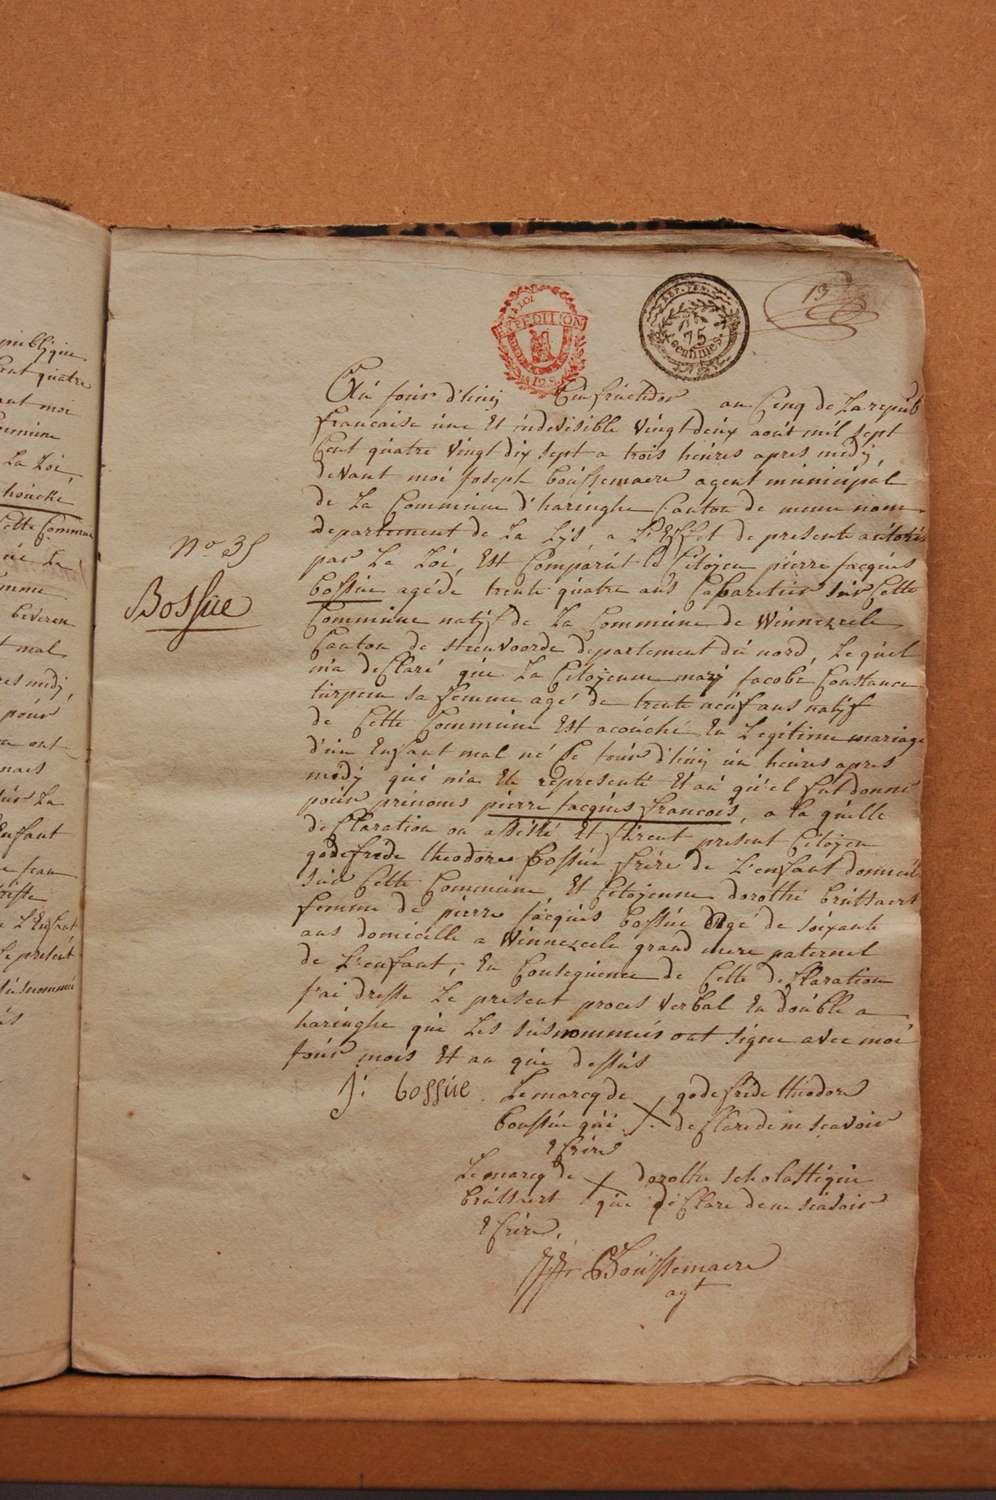 publique
Cent quatre
ant moi
Commune
La Loi,
houcke
Cette Commune
emme
beveren
t mal
res midy,
pour
ont
mais
sur La
Enfant
L'Enfant
Le present
susnommé
13
LOI
EXPEDITION
REP. FRA.
75
centimes
No 35
Bossüe
Au jour d'huy Cinq fructidor au Cinq de La repub
francaise une Et indevisible vingt deux août mil sept
Cent quatre vingt dix sept a trois heures apres midy,
devant moi joseph boussemaere agent municipal
de La Commune d'haringhe Canton de meme nom
departement de La Lijs a L'Effet de presente autorisé
par La Loi, Est Comparut le Citoyen pierre jacques
bossue agé de trente quatre ans Cabaretier sur Cette
Commune natif de La Commune de Winnezeele
Canton de steenvoorde departement du nord, Lequel
m'a declaré que La Citoyenne mary jacobe Constance
turpin sa femme agé de trente neuf ans natif
de Cette Commune Est acouché En Legitime mariage
d'un Enfant mal né Ce jour d'huy un heures apres
midy qui m'a Eté representé Et au qu'el fut donné
pour prinoms pierre jacques francois, a la quelle
declaration on assisté Et furent present Citoyen
godefrede theodore bossue frére de L'enfant domicilié
sur Cette Commune Et Citoyenne dorothé brussaert
femme de pierre jacques bossue agé de soixante
ans domicille a Winnezeele grand mere paternel
de L'enfant, En Consequence de Cette declaration
j'ai dresse Le present proces verbal En double a
haringhe que Les susnommés ont signe avec moi
jour mois Et an que dessus
J: bossüe. Le marcq de X godefrede theodore
boussue qui declare de ne scavoir
Ecrire
Le marcq de X dorothe scholastique
brussaert que declare de ne scavoir
Ecrire,
Boussemaere
agt